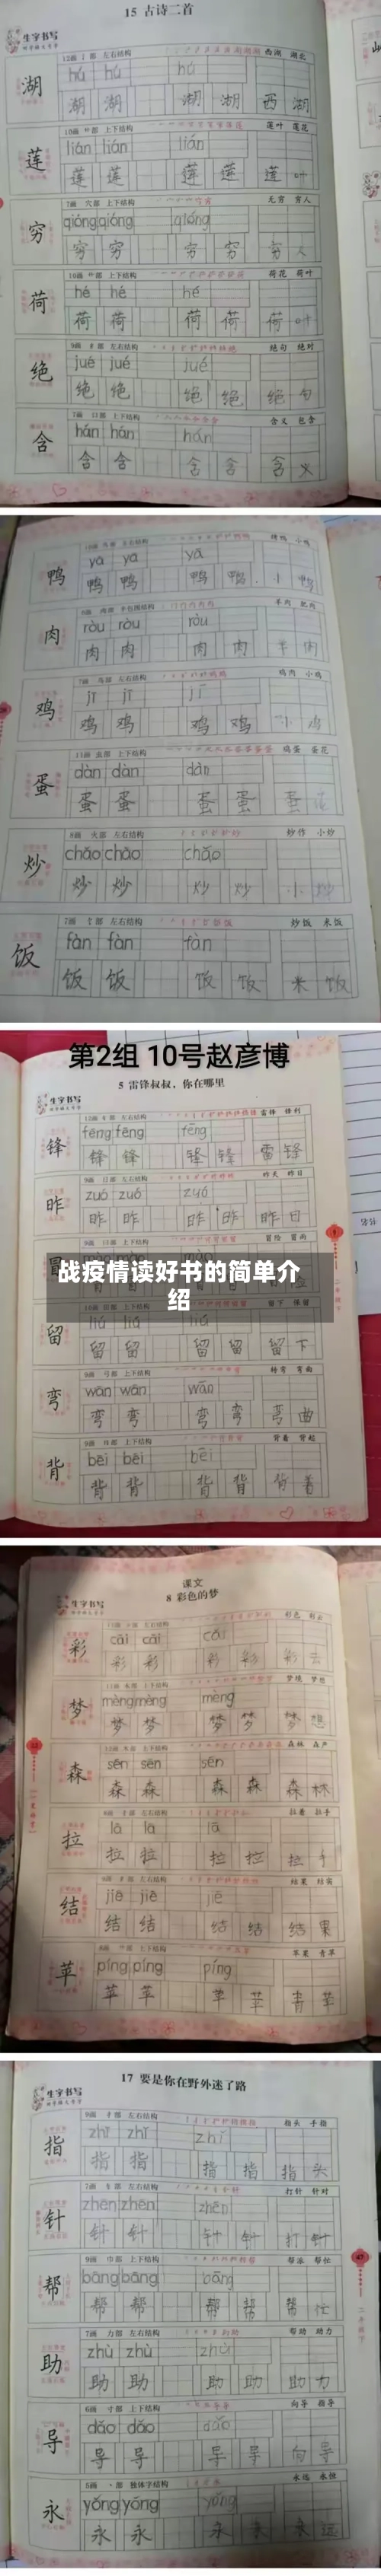 15 古诗二首
生字书写
湖
12画 氵部 左右结构
西湖 湖北
hú hú hú
湖 湖 湖 湖 西 湖
莲
10画 艹部 上下结构
莲叶 莲花
lián lián lián
莲 莲 莲 莲 莲 叶
穷
7画 穴部 上下结构
无穷 穷人
qióng qióng qióng
穷 穷 穷 穷 穷 人
荷
10画 艹部 上下结构
荷花 荷叶
hé hé hé
荷 荷 荷 荷 荷 叶
绝
9画 纟部 左右结构
绝句 绝对
jué jué jué
绝 绝 绝 绝 绝 句
含
7画 口部 上下结构
含义 包含
hán hán hán
含 含 含 含 含 义
鸭
10画 鸟部 左右结构
烤鸭 小鸭
yā yā yā
鸭 鸭 鸭 鸭 小 鸭
肉
羊肉
ròu ròu ròu
肉 肉 肉 肉 羊 肉
鸡
7画 鸟部 左右结构
鸡肉 小鸡
jī jī jī
鸡 鸡 鸡 鸡 小 鸡
蛋
11画 虫部 上下结构
鸡蛋 蛋花
dàn dàn dàn
蛋 蛋 蛋 蛋 蛋 花
炒
8画 火部 左右结构
炒作 小炒
chǎo chǎo chǎo
炒 炒 炒 炒 小 炒
饭
7画 饣部 左右结构
炒饭 米饭
fàn fàn fàn
饭 饭 饭 饭 米 饭
第2组 10号赵彦博
5 雷锋叔叔，你在哪里
生字书写
锋
12画 钅部 左右结构
雷锋 锋利
fēng fēng fēng
锋 锋 锋 锋 雷 锋
昨
9画 日部 左右结构
昨天 昨日
zuó zuó zuó
昨 昨 昨 昨 昨 日
冒
冒险 冒雨
mào mào mào
战疫情读好书的简单介
绍
留
10画 田部 上下结构
留下 保留
liú liú liú
留 留 留 留 留 下
弯
9画 弓部 上下结构
转弯 弯曲
wān wān wān
弯 弯 弯 弯 弯 曲
背
9画 月部 上下结构
背着 背起
bēi bēi bēi
背 背 背 背 背 着
课文
8 彩色的梦
生字书写
彩
11画 彡部 左右结构
彩色 彩云
cǎi cǎi cǎi
彩 彩 彩 彩 彩 云
梦
11画 木部 上下结构
梦境 梦想
mèng mèng mèng
梦 梦 梦 梦 梦 想
森
12画 木部
森林 森严
sēn sēn sēn
森 森 森 森 森 林
拉
8画 扌部 左右结构
拉着 拉手
lā lā lā
拉 拉 拉 拉 拉 手
结
9画 纟部 左右结构
结果 结实
jiē jiē jiē
结 结 结 结 结 果
苹
8画 艹部 上下结构
苹果 青苹
píng píng píng
苹 苹 苹 苹 青 苹
17 要是你在野外迷了路
生字书写
指
9画 扌部 左右结构
指头 手指
zhǐ zhǐ zhǐ
指 指 指 指 指 头
针
7画 钅部 左右结构
打针 针对
zhēn zhēn zhēn
针 针 针 针 打 针
帮
9画 巾部 上下结构
帮派 帮忙
bāng bāng bāng
帮 帮 帮 帮 帮 忙
助
7画 力部 左右结构
帮助 助力
zhù zhù zhù
助 助 助 助 助 力
导
6画 寸部 上下结构
向导 指导
dǎo dǎo dǎo
导 导 导 导 向 导
永
5画 丶部 独体字结构
永远 永恒
yǒng yǒng yǒng
永 永 永 永 永 远